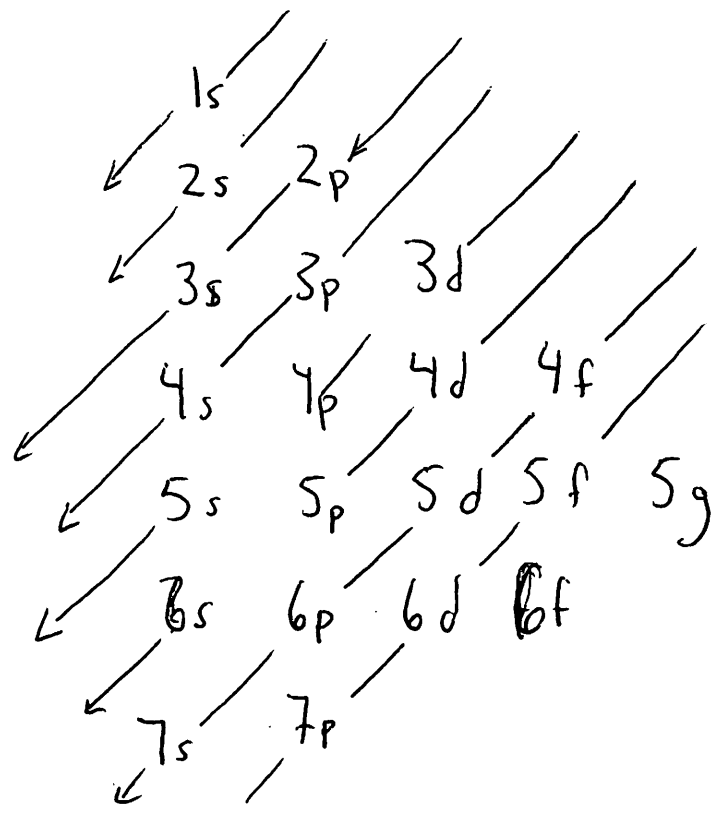 1s
2s 2p
3s 3p 3d
4s 4p 4d 4f
5s 5p 5d 5f 5g
6s 6p 6d 6f
7s 7p